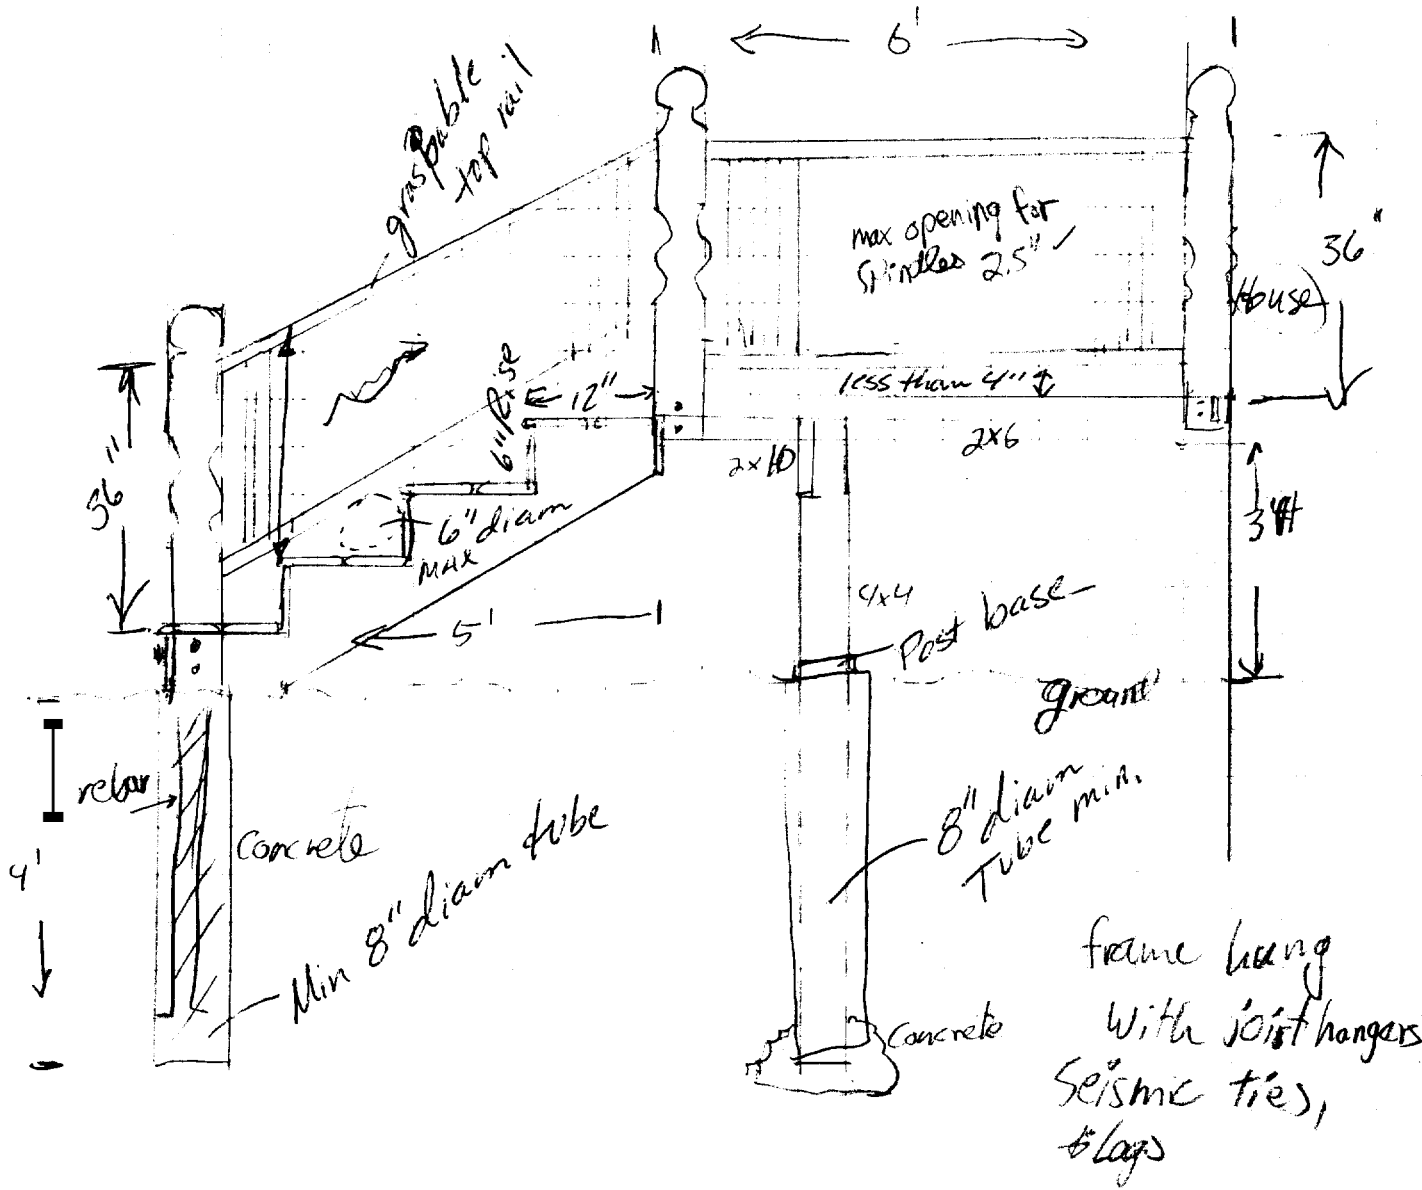 6'
graspable
top rail
max opening for
spindles 2.5" ✓
36"
House
less than 4"
12"
6" Rise
2x10
2x6
36"
6" diam
max
3'
5'
4x4
Post base
ground
rebar
concrete
4'
Min 8" diam tube
8" diam
Tube min.
concrete
frame hung
with joist hangers
Seismic ties,
lags